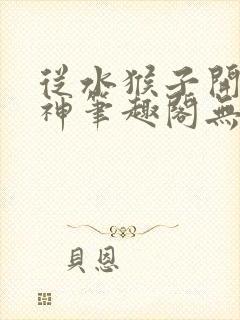 從水猴子開
神筆趣閣無
貝恩